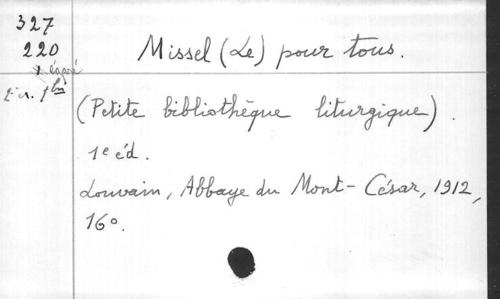 327
220
Missel (Le) pour tous.
(Petite bibliothèque liturgique).
1e éd.
Louvain, Abbaye du Mont-César, 1912,
16o.